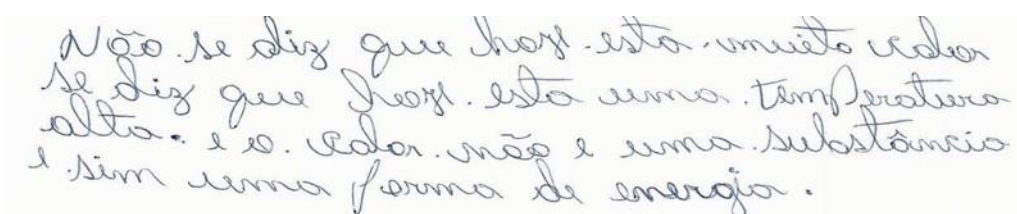 Não se diz que hoje esta muito calor
se diz que hoje esta uma temperatura
alta. e o calor não e uma substância
e sim uma forma de energia.